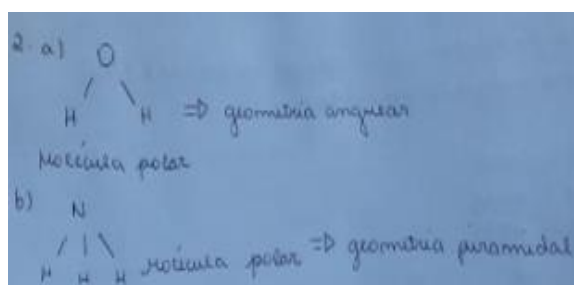 2. a) O
H H => geometria angular
Molécula polar
b) N
H H H Molécula polar => geometria piramidal